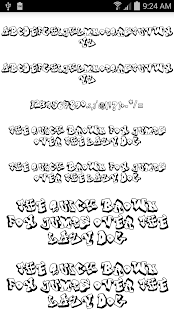 9:24 AM
ABCDEFGHIJKLMNOPQRSTUVWX
YZ
ABCDEFGHIJKLMNOPQRSTUVWX
YZ
THE QUICK BROWN FOX JUMPS
OVER THE LAZY DOG
THE QUICK BROWN FOX JUMPS
OVER THE LAZY DOG
THE QUICK BROWN
FOX JUMPS OVER THE
LAZY DOG
THE QUICK BROWN
FOX JUMPS OVER THE
LAZY DOG